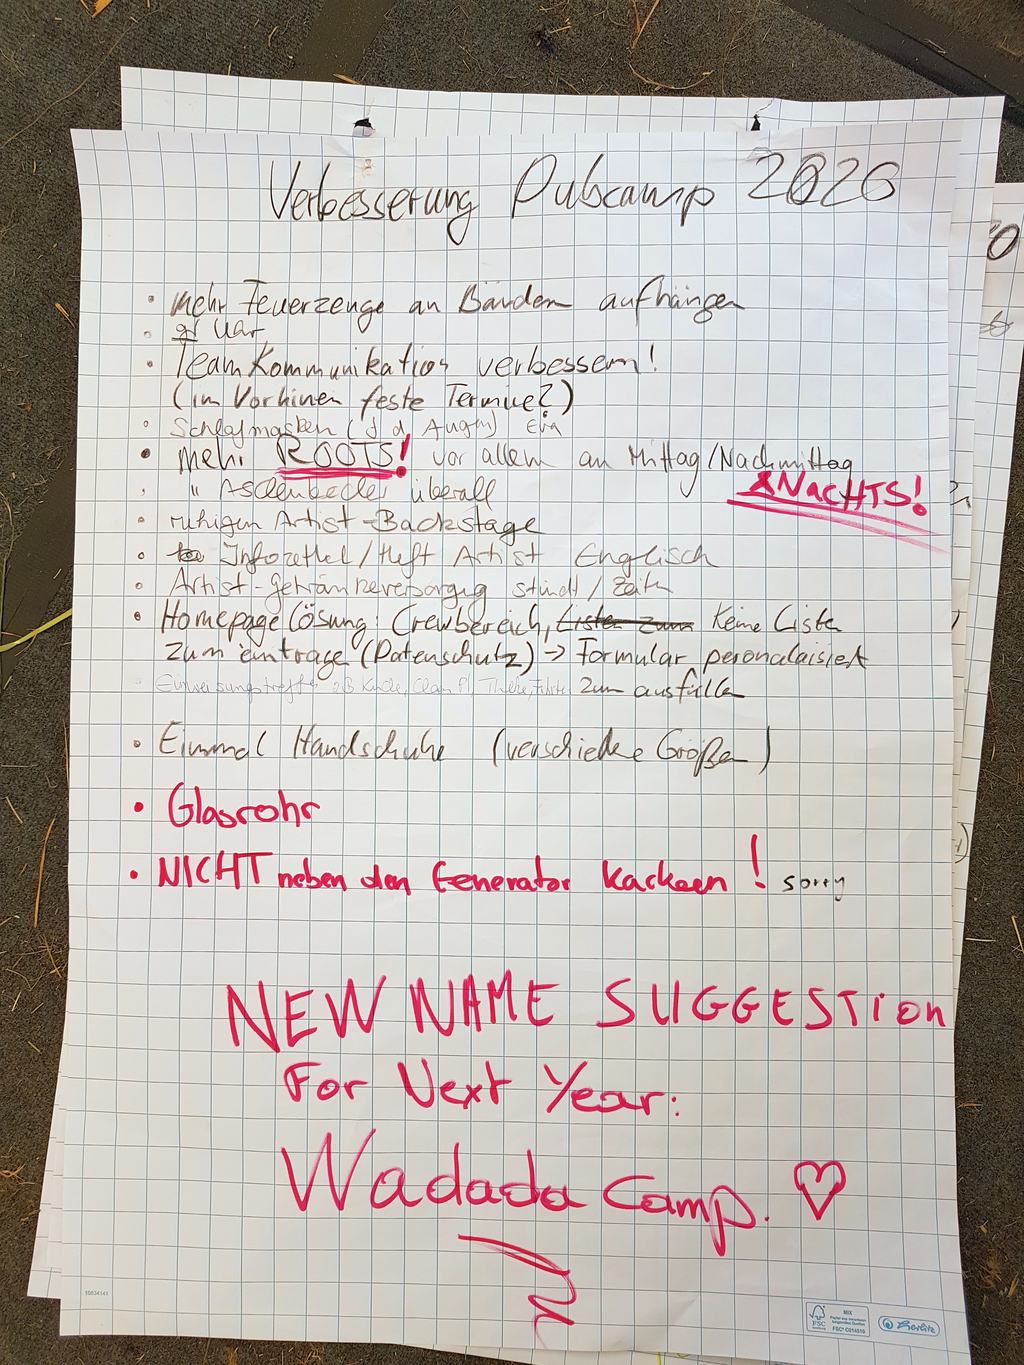 Verbesserung Dubcamp 2026
• mehr Feuerzeuge an Bänden aufhängen
• Uar
• Team Kommunikation verbessern!
(im Vorhinen feste Termine?)
• Schlafmasken (f. d. Augen) Eva
• mehr ROOTS! vor allem an Mittag/Nachmittag
& NACHTS!
• " Aschenbecher überall
• ruhigen Artist-Backstage
• Infozettel/Heft Artist Englisch
• Artist-Getränkeversorgung
• Homepage Lösung: Crewbereich, Listen zum Keine Liste
zum eintrage (Datenschutz) → Formular peronalaisiert
• Einweisungstreffen zB Küche, Theke, zum ausfüllen
• Einmal Handschuhe (verschiedene Größen)
• Glasrohr
• NICHT neben den Generator kacken! sorry
NEW NAME SUGGESTion
For Next Year:
Wadada Camp. ♡
10834141
FSC
MIX
FSC® C014510
herlitz